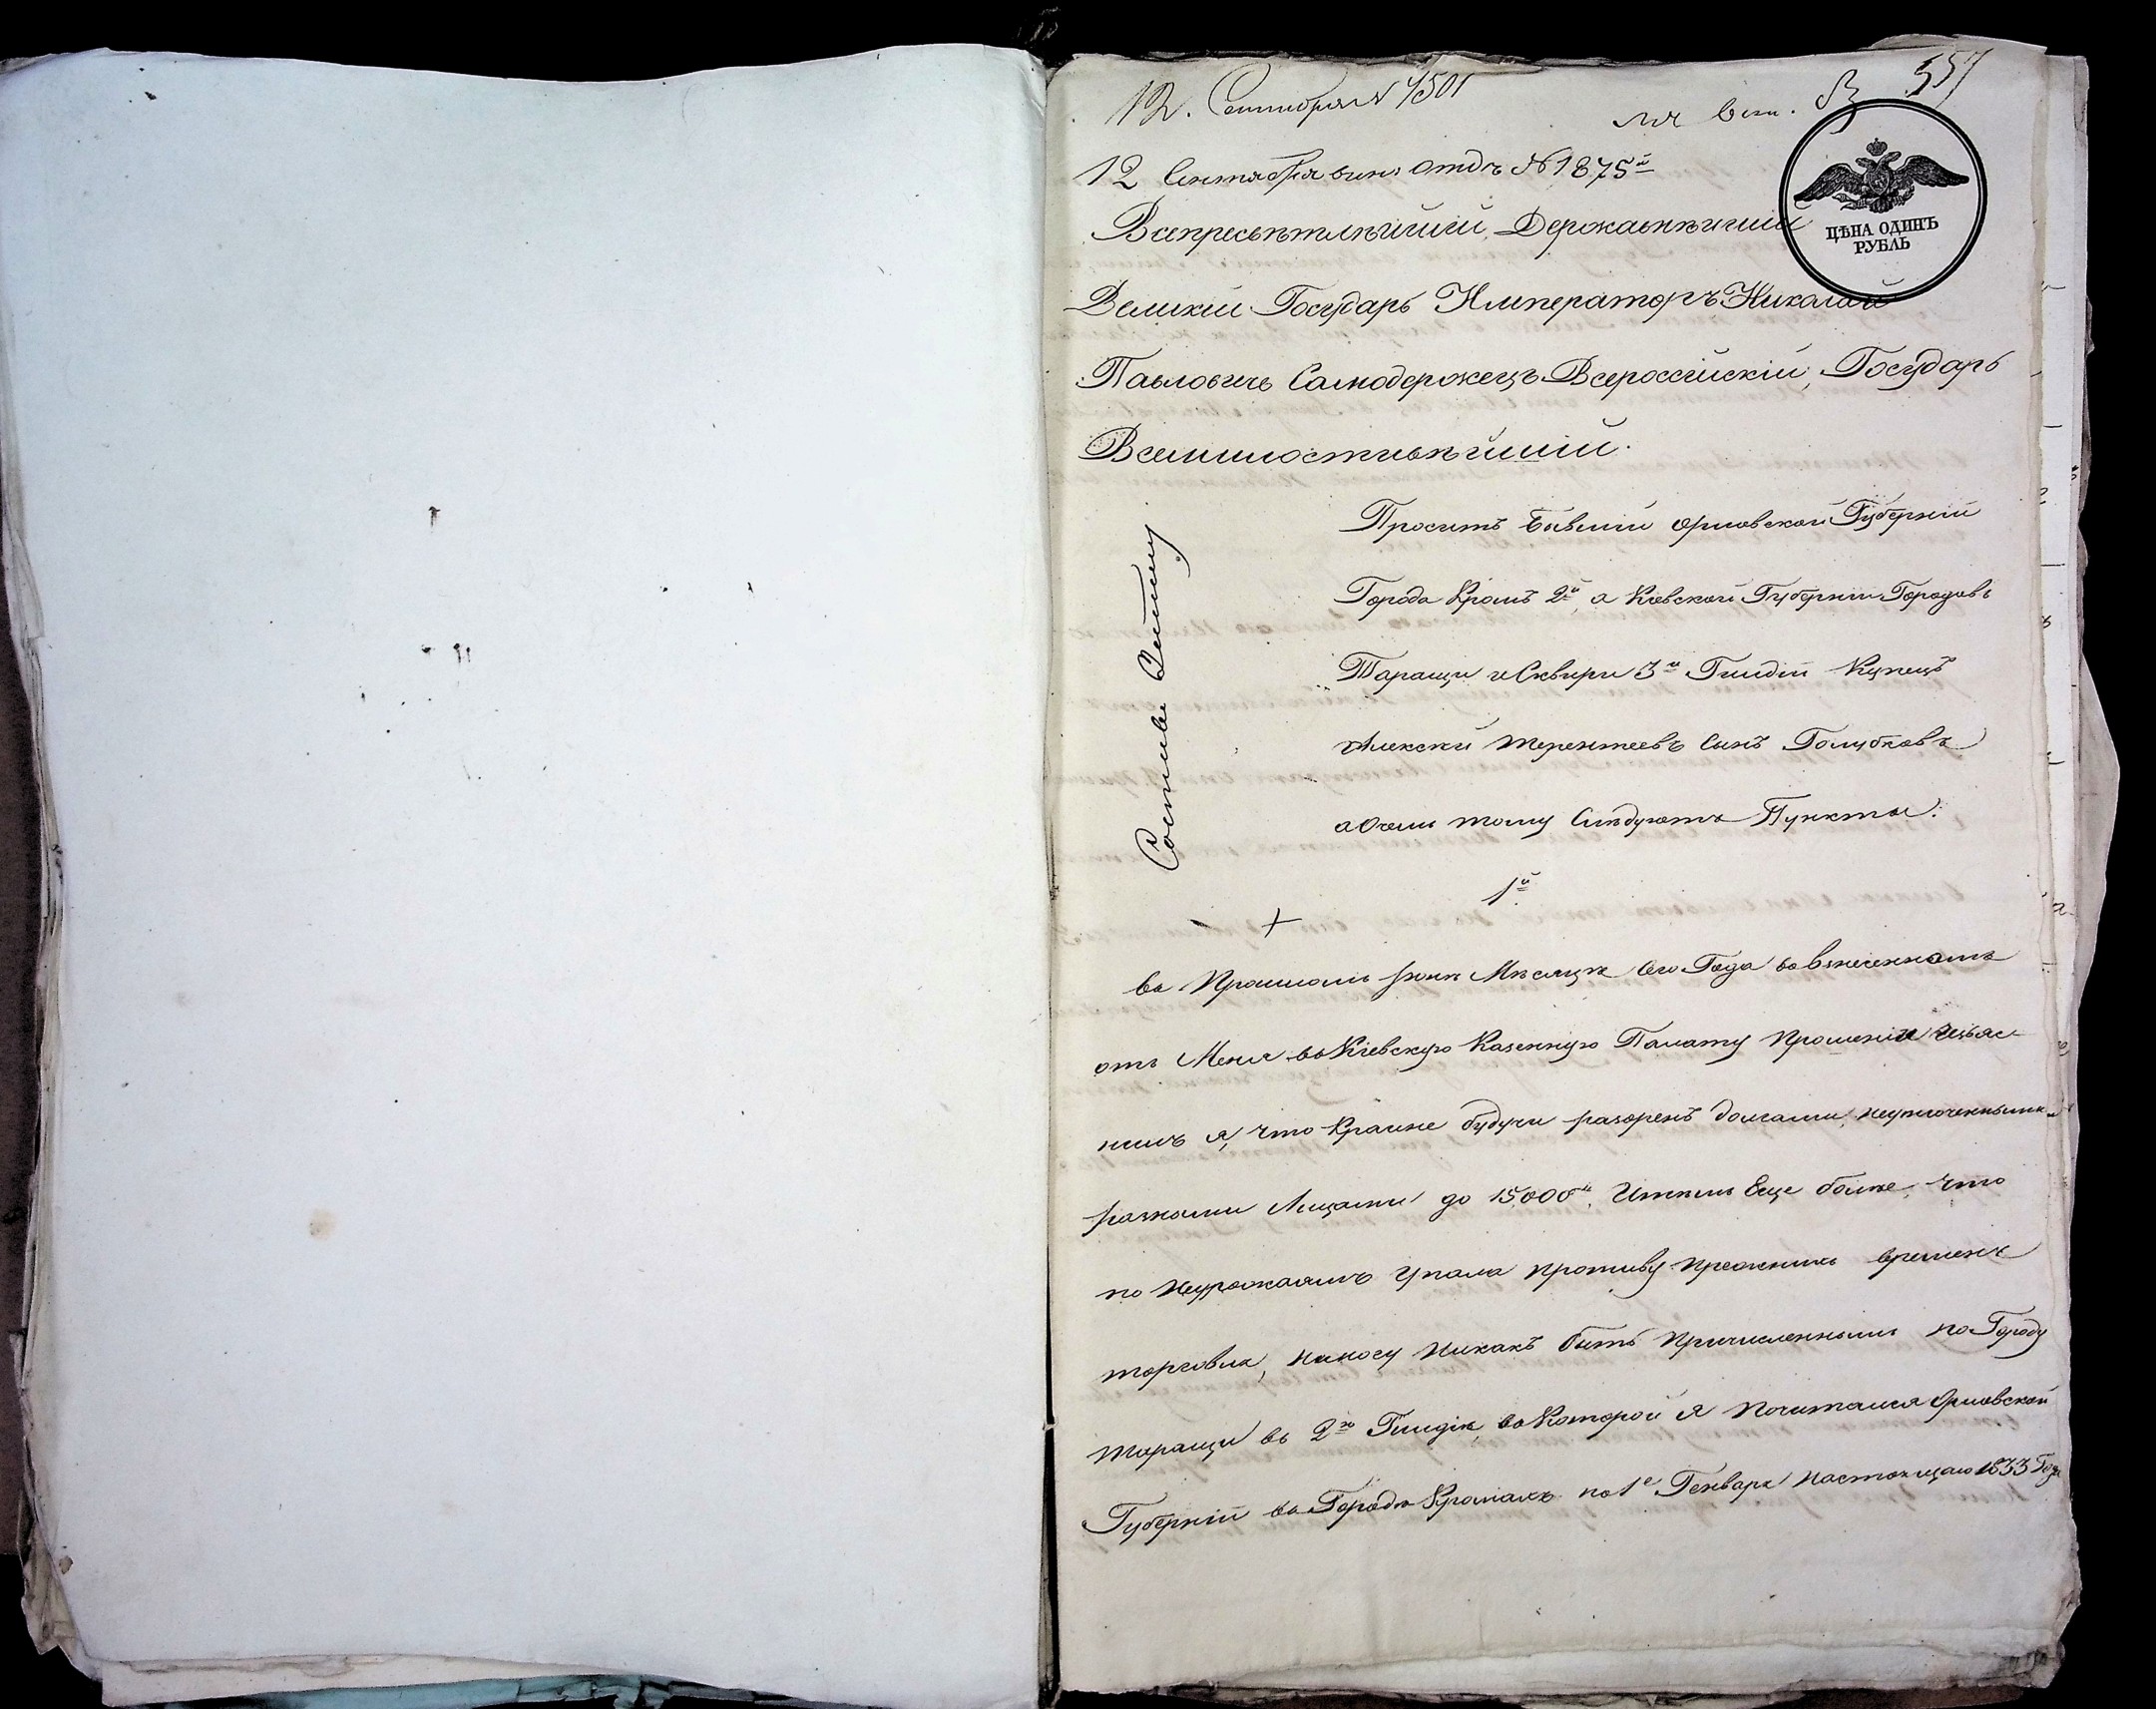 12. Сентября № 4501
557
12 Сентября винн отдъ № 1875й
ЦѢНА ОДИНЪ
РУБЛЬ
Всепресвѣтлѣйшій, Державнѣйшій
Великій Государь Императоръ Николай
Павловичь Самодержецъ Всероссійскій, Государь
Всемилостивѣйшій.
Проситъ бывшій орловской Губерніи
Города Кромъ 2й, а Кіевской Губерніи Городовъ
Таращи и Сквири 3й Гилдіи Купецъ
Алексѣй терентеевъ Сынъ Голубковъ
а очемъ тому Слѣдуютъ Пункты:
1й
въ Прошломъ Іюнѣ Мѣсяцѣ сего Года во взнесенномъ
отъ Меня въ Кіевскую Казенную Палату Прошеніи изъяс
нилъ я, что Крайне будучи разоренъ долгами, неуплоченными
разными Лицами до 15,000й, и тѣмъ Еще болѣе, что
по Неурожаямъ упала противу прежнихъ временъ
торговля, немогу Никакъ быть Причисленнымъ по Городу
таращи въ 2ю Гилдію, въ Которой я Почитался Орловской
Губерніи въ Городѣ Кромахъ по 1е Генваря настоящаго 1833 Года